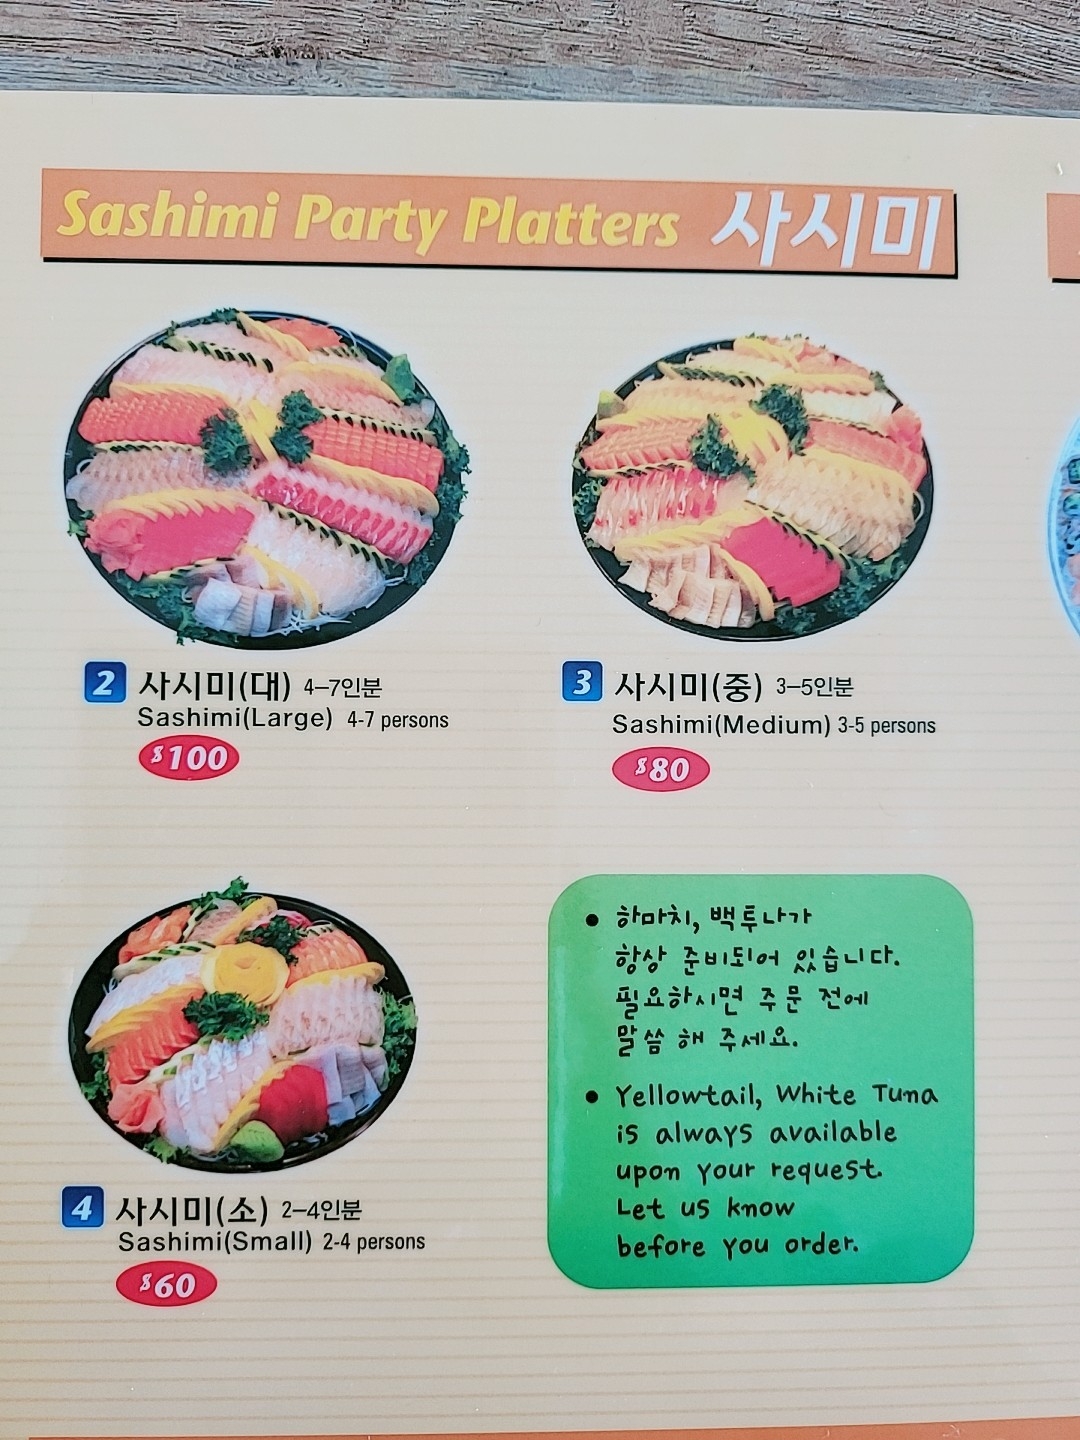 Sashimi Party Platters 사시미
2 사시미(대) 4-7인분
Sashimi(Large) 4-7 persons
$100
3 사시미(중) 3-5인분
Sashimi(Medium) 3-5 persons
$80
4 사시미(소) 2-4인분
Sashimi(Small) 2-4 persons
$60
• 하마치, 백투나가
항상 준비되어 있습니다.
필요하시면 주문 전에
말씀 해 주세요.
• Yellowtail, White Tuna
is always available
upon your request.
Let us know
before you order.